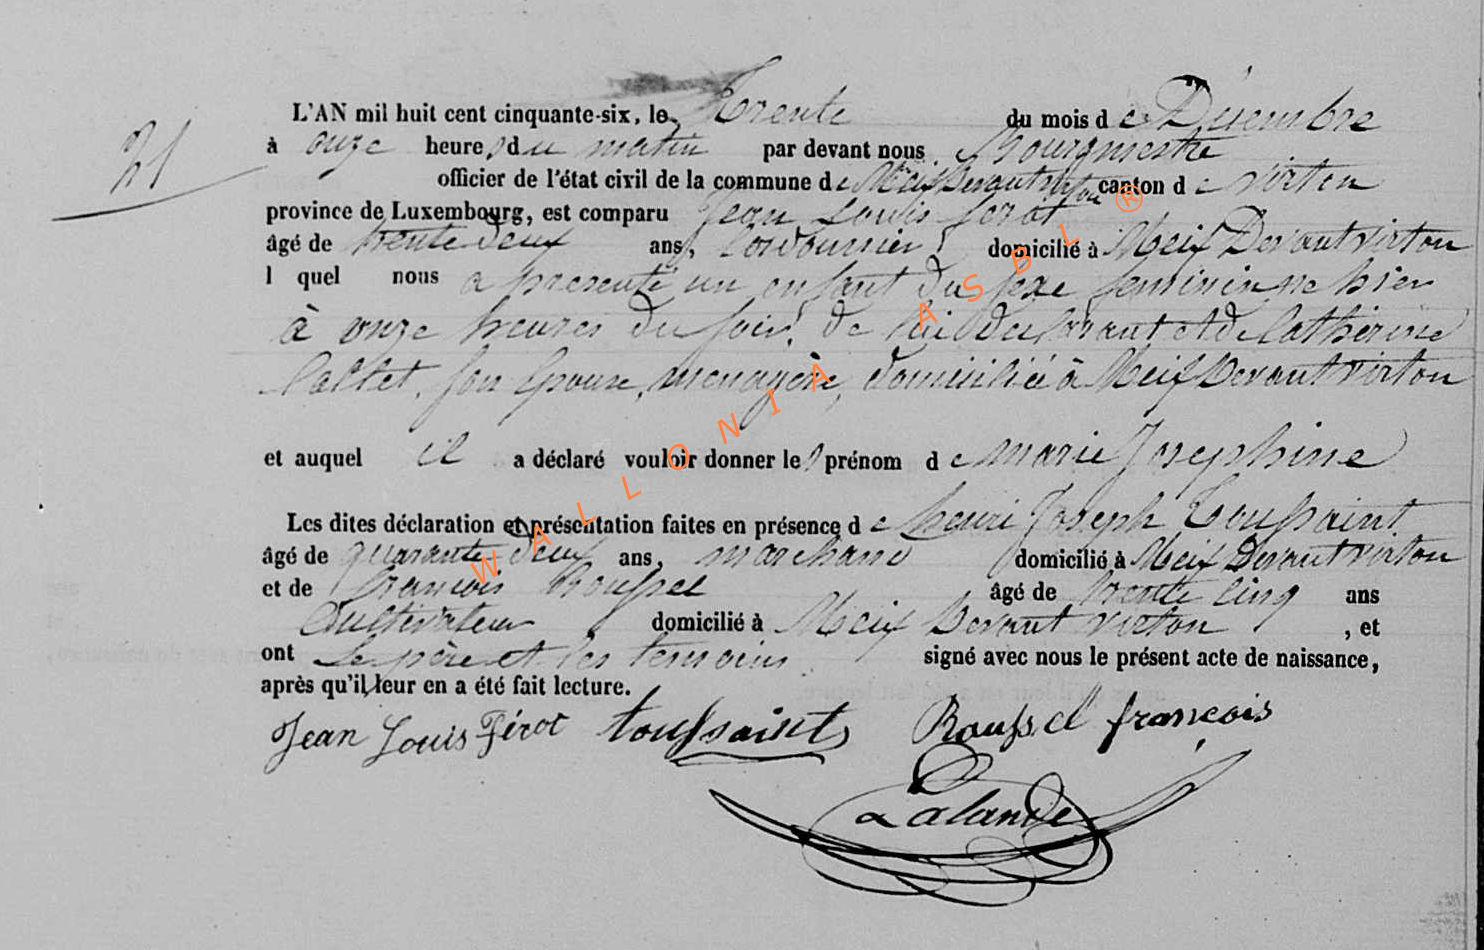 L'AN mil huit cent cinquante-six, le Trente du mois de Décembre
21
à onze heures du matin par devant nous Bourgmestre
officier de l'état civil de la commune de Meix Devant virton canton de virton
province de Luxembourg, est comparu Jean Louis ferot
âgé de trente deux ans, Cordonnier, domicilié à Meix Devant virton
l quel nous a presenté un enfant du sexe feminin ne hier
à onze heures du soir, de lui declarant et de Catherine
son épouse, menagère, domiciliée à Meix Devant virton
et auquel il a déclaré vouloir donner les prénom de marie Josephine
Les dites déclaration et présentation faites en présence de henri Joseph Toussaint
âgé de quarante deux ans, marchand domicilié à Meix Devant virton
et de francois Roussel âgé de trente cinq ans
Cultivateur domicilié à Meix Devant virton , et
ont Le père et les temoins signé avec nous le présent acte de naissance,
après qu'il leur en a été fait lecture.
Jean Louis Férot toussaint Roussel françois
Lalande
WALLONIA ASBL ®